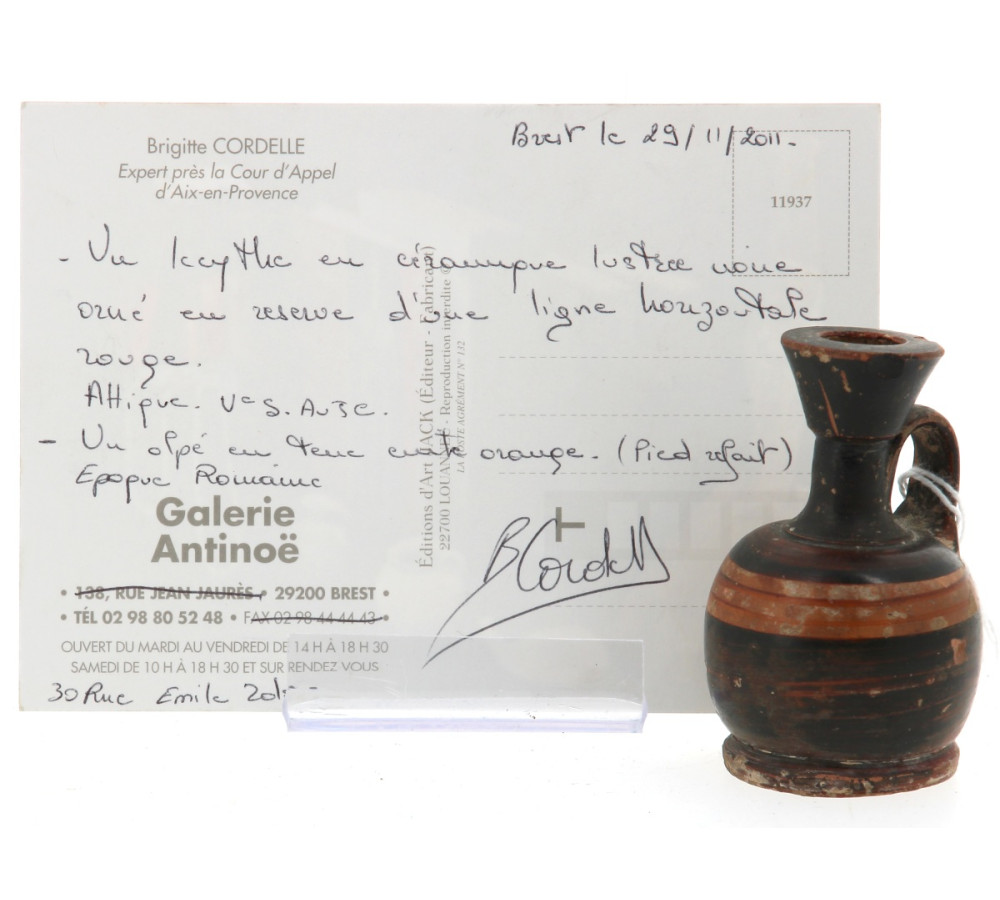 Brigitte CORDELLE
Expert près la Cour d'Appel
d'Aix-en-Provence
Brest le 29/11/2011.
11937
- Un lecythe en céramique lustrée noire
orné en reserve d'une ligne horizontale
rouge.
Attique. Ve S. Av J C.
- Un olpé en terre cuite orange. (Pied refait)
Epoque Romaine
Galerie
Antinoë
• 138, RUE JEAN JAURÈS, • 29200 BREST •
• TÉL 02 98 80 52 48 • FAX 02 98 44 44 43 •
OUVERT DU MARDI AU VENDREDI DE 14 H À 18 H 30
SAMEDI DE 10 H À 18 H 30 ET SUR RENDEZ VOUS
30 Rue Emile Zola
Éditions d'Art JACK (Éditeur - Fabricant)
22700 LOUANNEC - Reproduction interdite ©
LA POSTE AGRÉMENT N° 132
B Cordelle